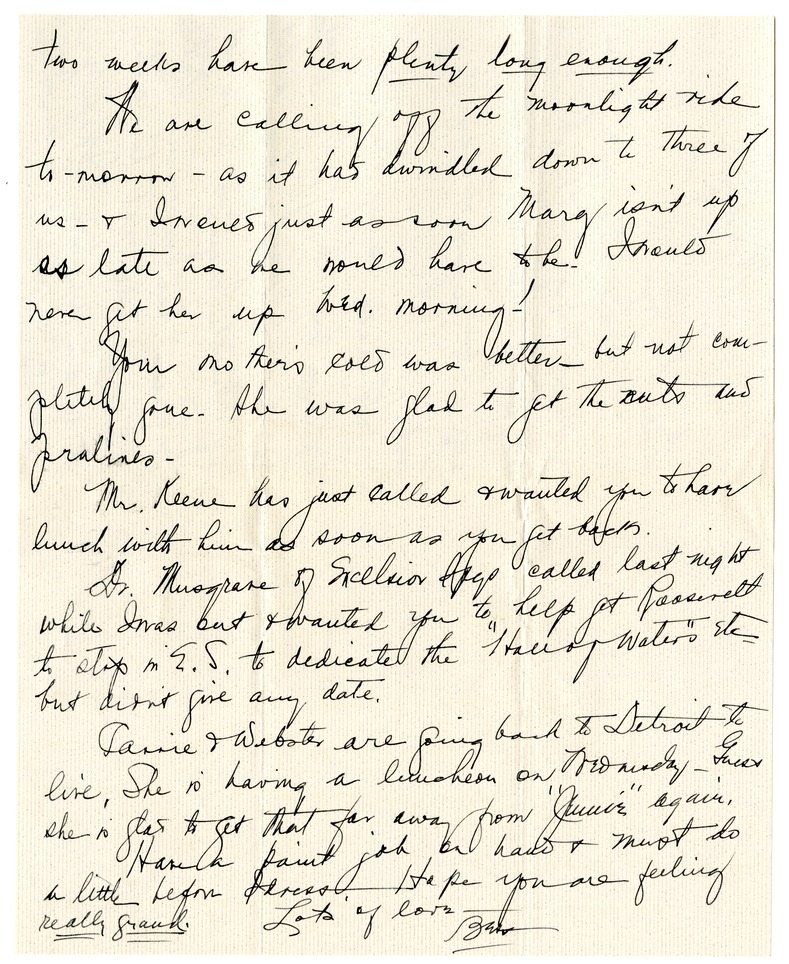 two weeks have been plenty long enough.
We are calling off the moonlight ride
to-morrow - as it has dwindled down to three of
us - & I would just as soon Marg isn't up
as late as we would have to be. I would
never get her up Wed. morning!
Your mother's cold was better - but not com-
pletely gone. She was glad to get the nuts and
pralines -
Mr. Keene has just called & wanted you to have
lunch with him as soon as you get back.
Dr. Musgrave of Excelsior Spgs called last night
while I was out & wanted you to help get Roosevelt
to stop in E.S. to dedicate the "Hall of Waters" etc -
but didn't give any date.
& Webster are going back to Detroit to
live. She is having a luncheon on Wednesday - Guess
she is glad to get that far away from again.
Have a paint job on hand & must do
a little before I dress - Hope you are feeling
really grand. Lots of love -
Bess